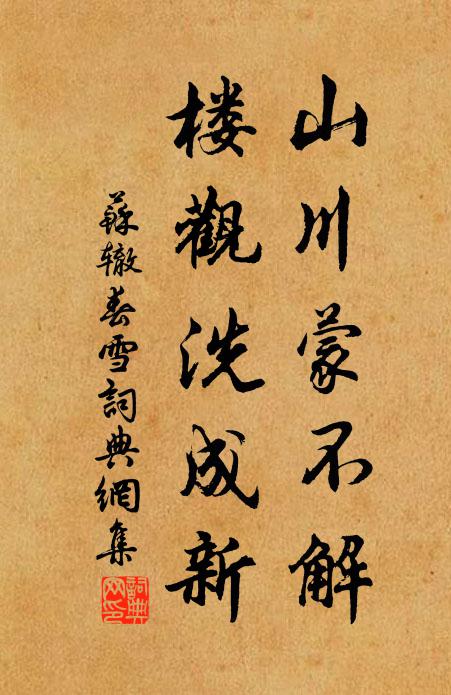 山川蒙不解
楼觀洗成新
蘇辙春雪詞典網集
詞典网印